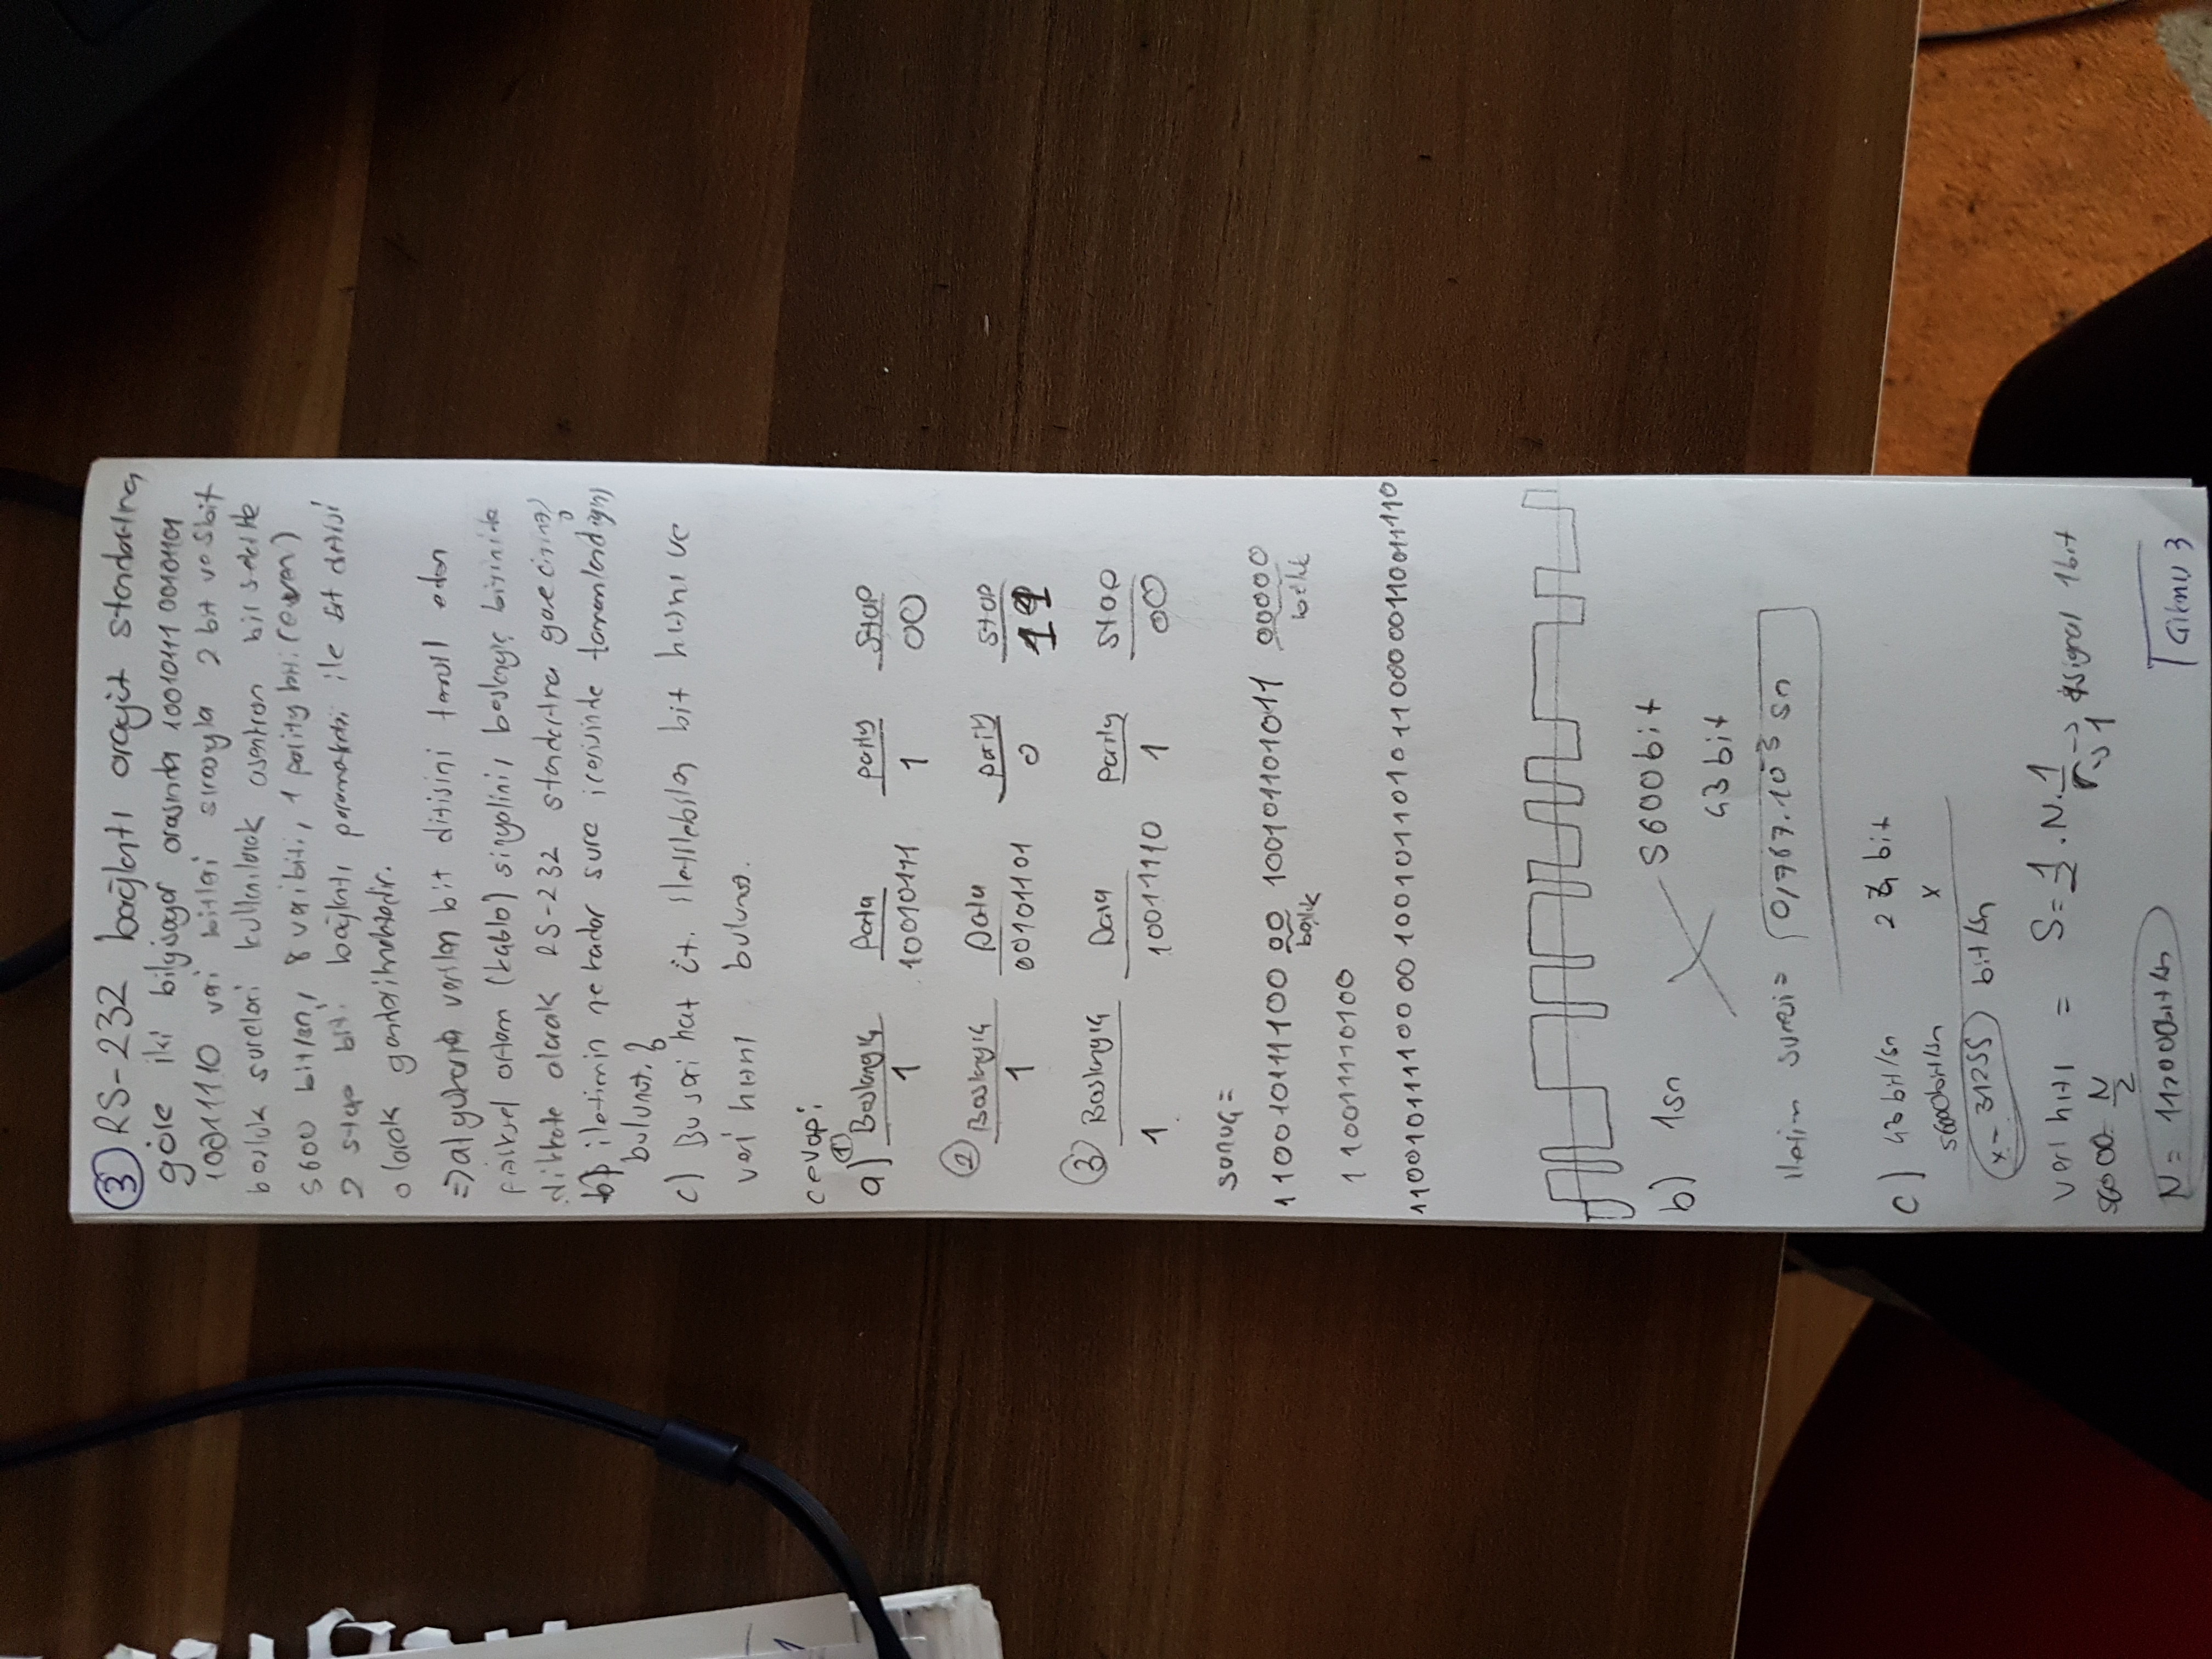 ③ RS-232 bağlantı arayüt standartına
göre iki bilgisayar arasında 10010111 00101101
10011110 veri bitleri sırasıyla 2 bit ve 5bit
boşluk sureleri kullanılarak asenkron bir sekilde
5600 bit/sn, 8 veribiti, 1 parity biti (even)
2 stop biti bağlantı parametresi ile bit ditisi
olarak gonderilmektedir.
=> a) yukarıda verilen bit ditisini temsil eden
fiziksel ortam (kablo) sinyalini, baslangıç bitinide
dikkate alarak RS-232 standartına gore ciziniz?
b) iletimin ne kadar sure icerisinde tamamlandığını
bulunuz.?
c) Bu seri hat iletilebilen bit hızını ve
veri hızını bulunuz.
cevap:
a) ① Baslangıç Data parity Stop
1 10010111 1 00
② Baslangıç Data parity Stop
1 00101101 0 11
③ Baslangıç Data Parity Stop
1 10011110 1 00
sonuç =
110010111100 00 100101101011 00000
boşluk boşluk
110011110100
110010111100 00 100101101011 00000110011110
b) 1sn 5600bit
43 bit
iletim suresi = 0,767.10⁻³ sn
c) 43 bit/sn 24 bit
56000bit/sn x
x= 31255 bit/sn
Veri hızı = S= 1/2 . N. 1/r -> signal 1bit
-> 1
56000= N/2
N= 112000bit/sn
3